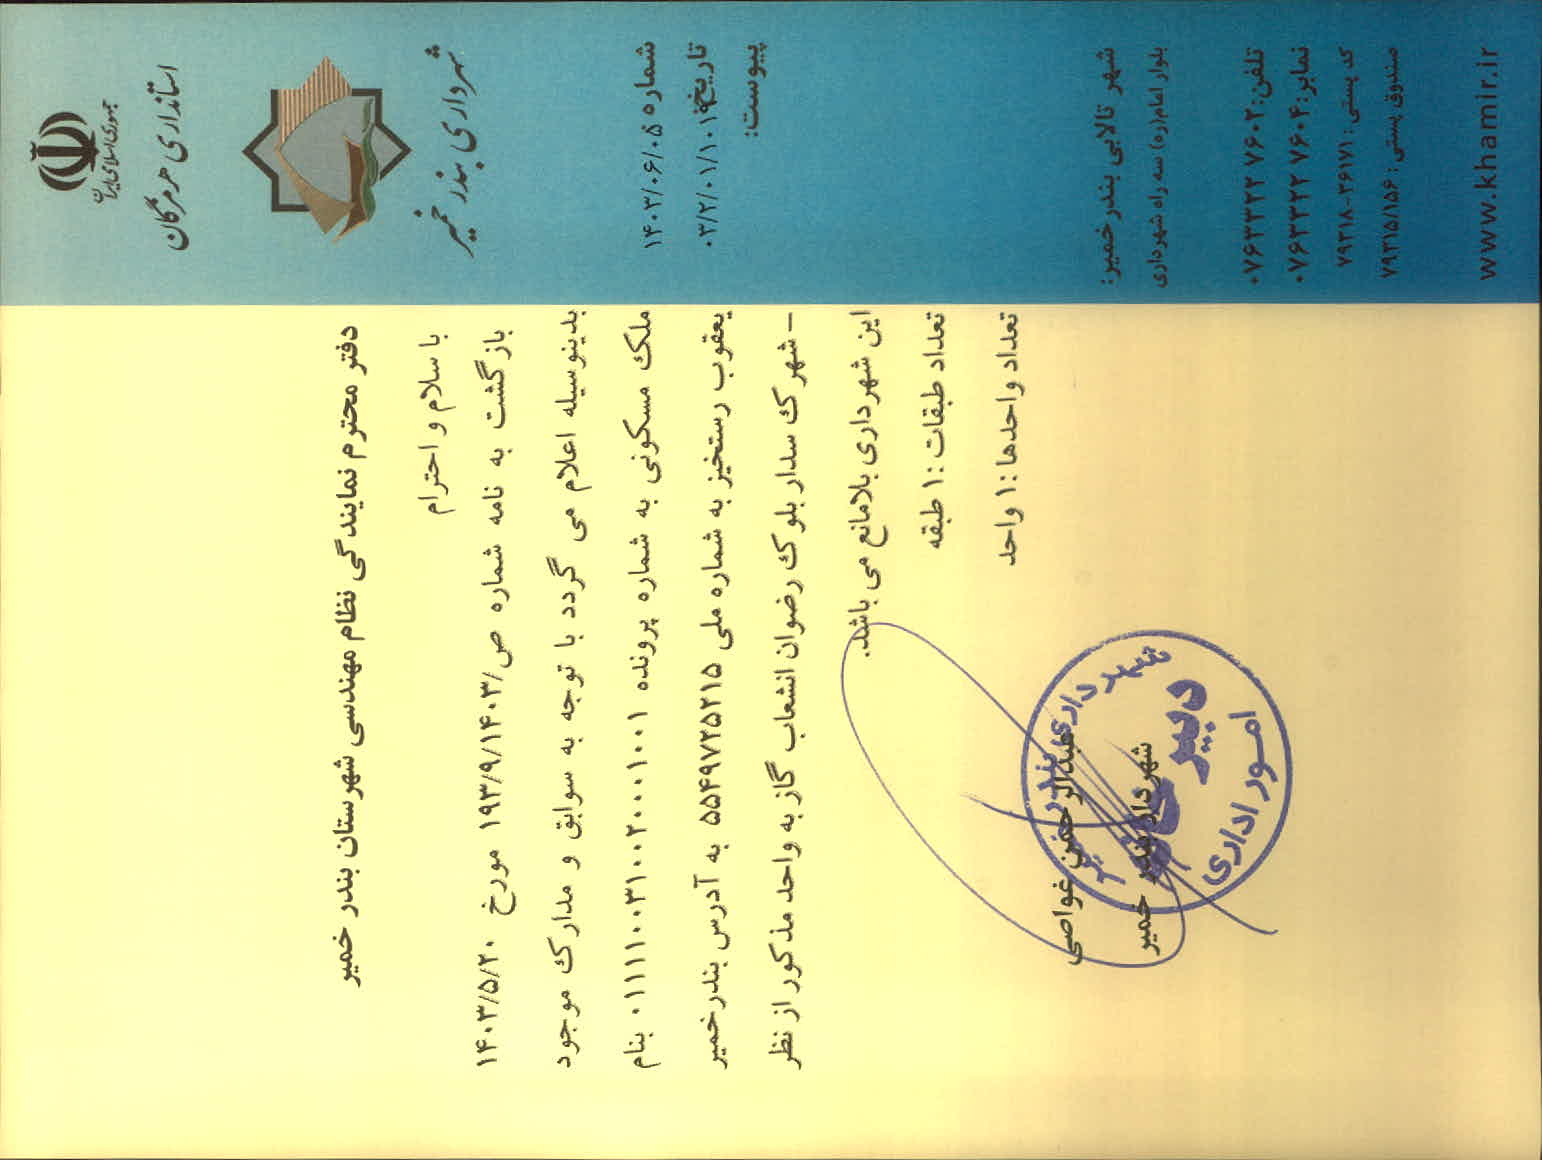 جمهوری اسلامی ایران
استانداری هرمزگان
شهرداری بندر خمیر
شماره ۱۴۰۳/۰۶/۰۵
تاریخ
۰۳/۲/۰۱/۱۰۱۹
پیوست:
شهر تالابی بندر خمیر:
بلوار امام(ره) سه راه شهرداری
تلفن: ۰۷۶۳۳۲۲۷۶۰۲
نمابر: ۰۷۶۳۳۲۲۷۶۰۴
کد پستی: ۷۹۳۱۸-۳۶۱۷۱
صندوق پستی: ۷۹۳۱۵/۱۵۶
www.khamir.ir
دفتر محترم نمایندگی نظام مهندسی شهرستان بندر خمیر
با سلام و احترام
بازگشت به نامه شماره ص/۱۹۳/۹/۱۴۰۳ مورخ ۱۴۰۳/۵/۲۰
بدینوسیله اعلام می گردد با توجه به سوابق و مدارک موجود
ملک مسکونی به شماره پرونده ۰۱۱۱۱۰۰۳۱۰۰۲۰۰۰۱۰۰۱ بنام
یعقوب رستخیز به شماره ملی ۵۵۴۹۷۲۵۲۱۵ به آدرس بندرخمیر
– شهرک سدار بلوک رضوان انشعاب گاز به واحد مذکور از نظر
این شهرداری بلامانع می باشد.
تعداد طبقات :۱ طبقه
تعداد واحدها :۱ واحد
عبدالرحمن غواصی
شهردار بندر خمیر
شهرداری بندر خمیر
دبیرخانه
امور اداری